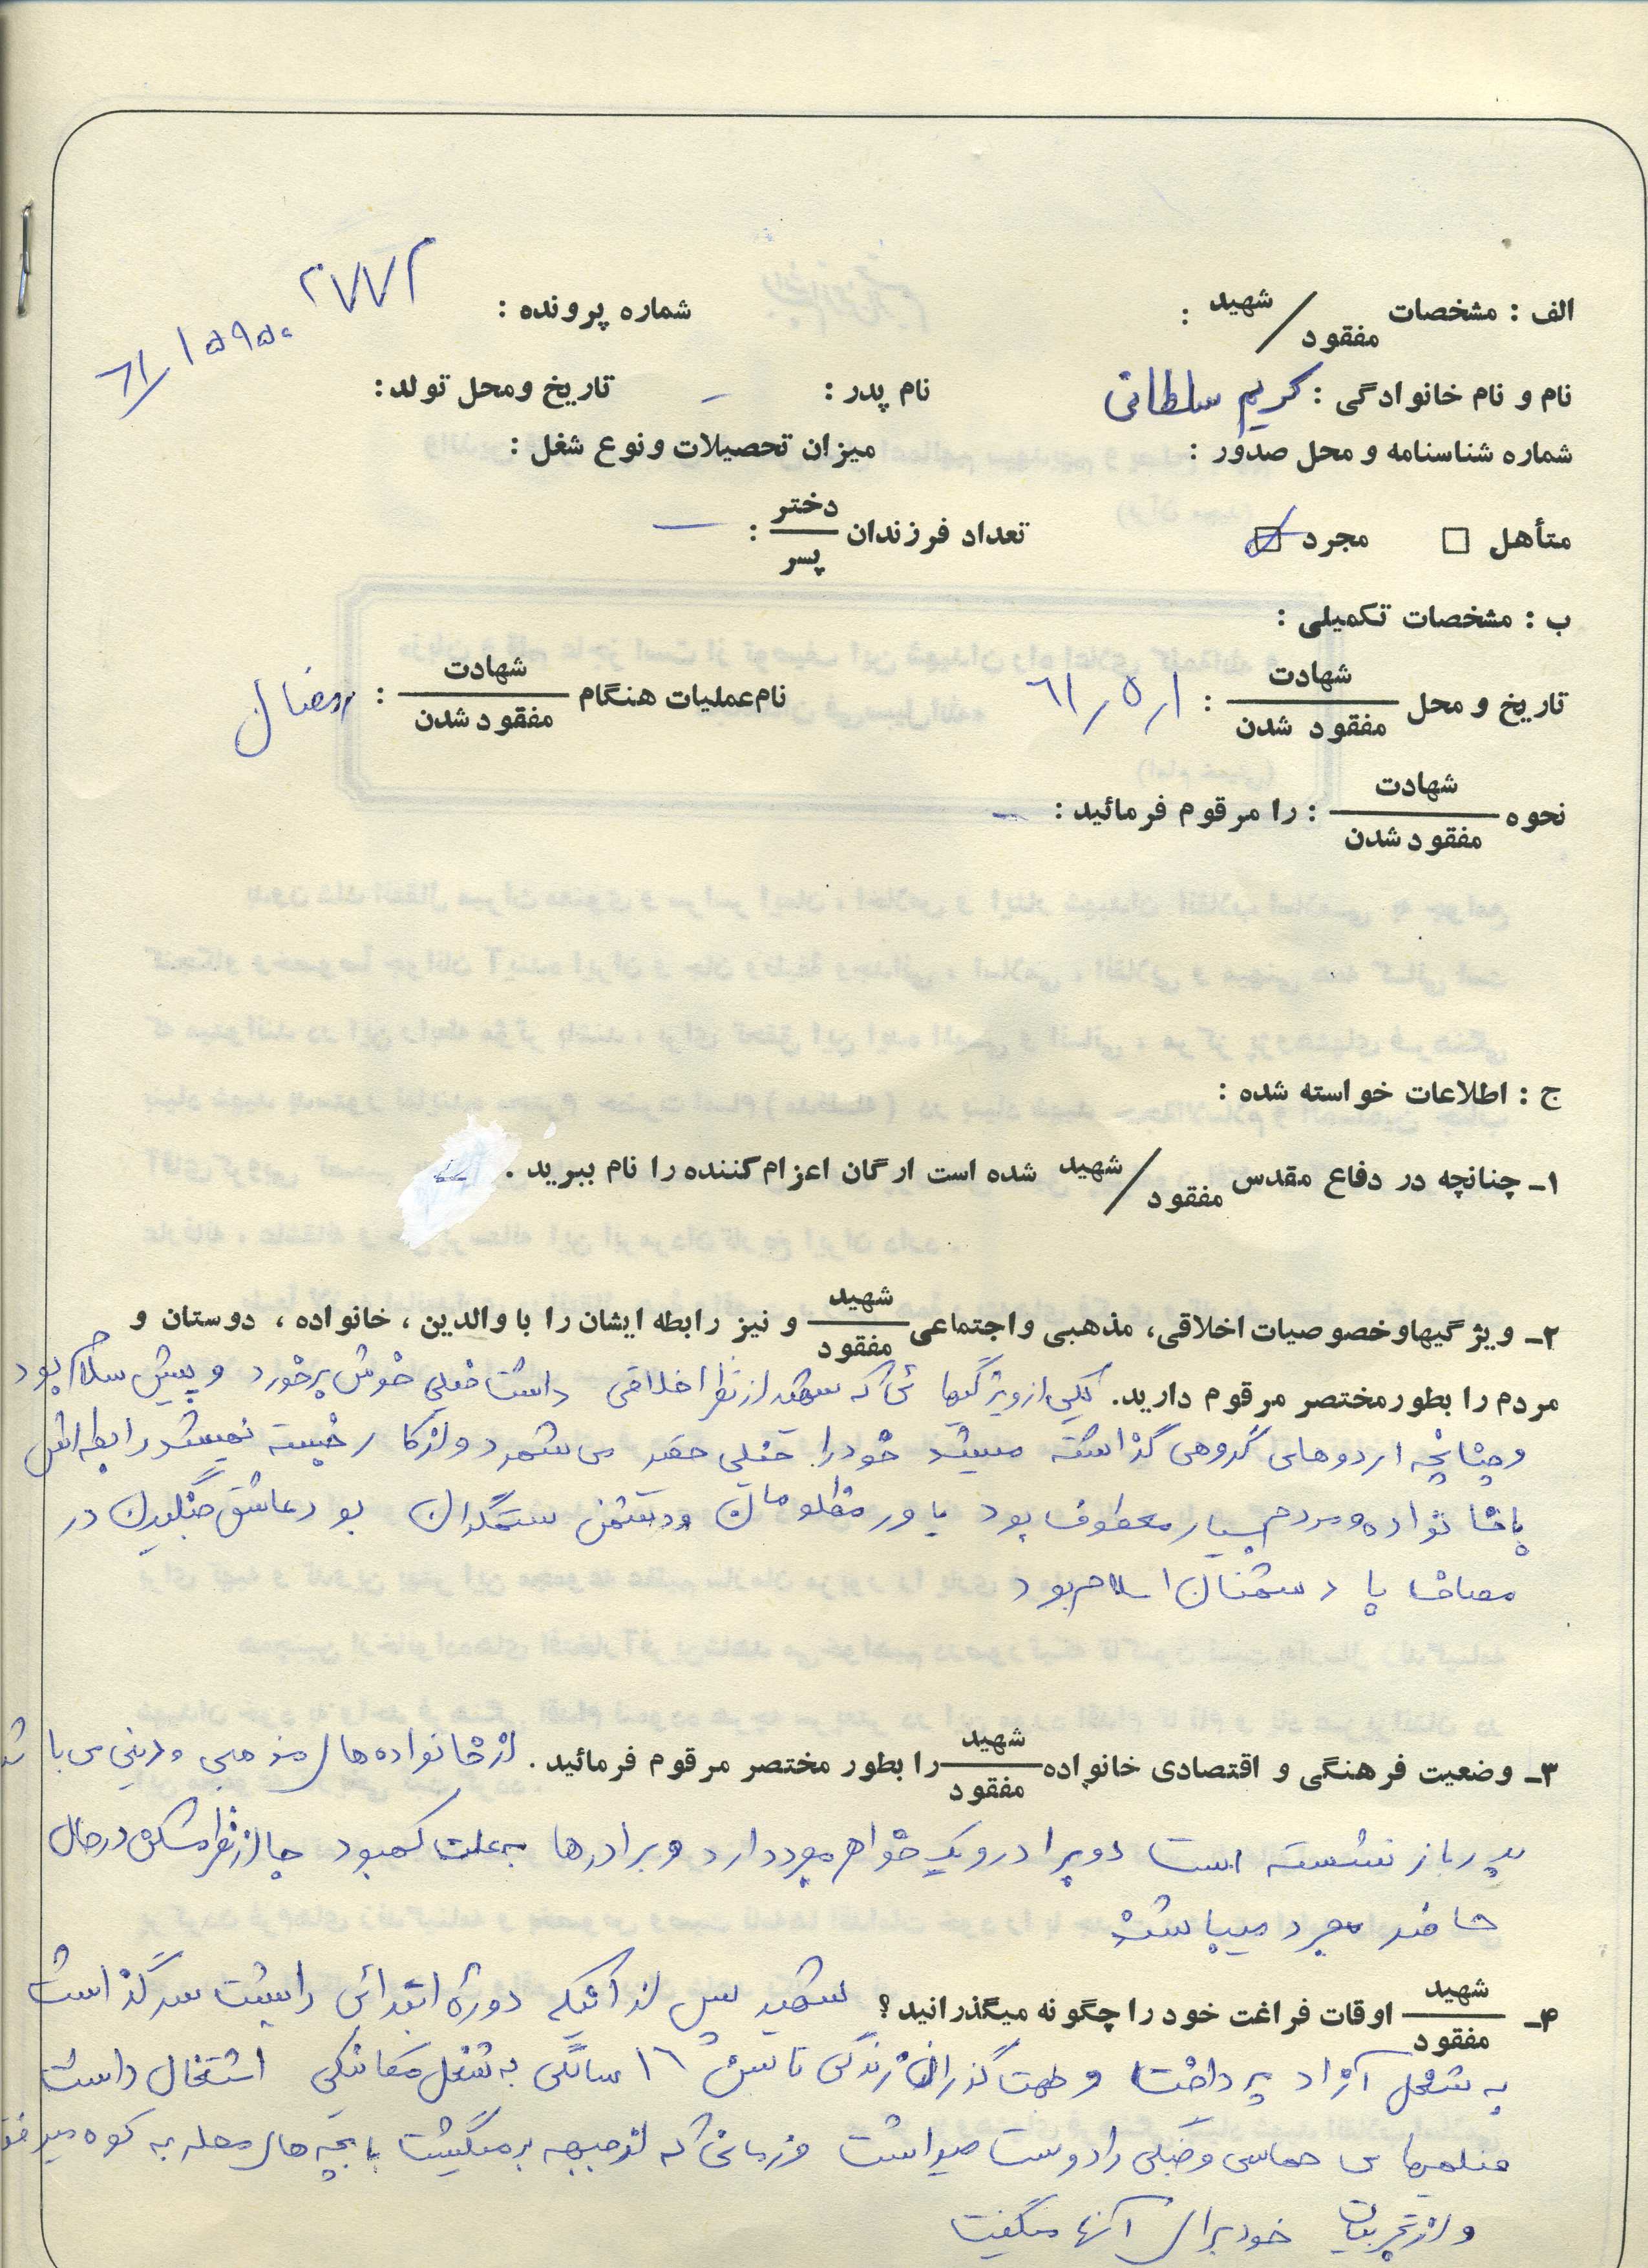 الف : مشخصات شهید / مفقود :
شماره پرونده : ۲۷۷۲
۶۱/۱۵۹۵۰
نام و نام خانوادگی : کریم سلطانی نام پدر : – تاریخ ومحل تولد:
شماره شناسنامه و محل صدور : میزان تحصیلات ونوع شغل :
متأهل □ مجرد ☑ تعداد فرزندان دختر / پسر : —
ب : مشخصات تکمیلی :
تاریخ و محل شهادت / مفقود شدن : ۶۱/۵/۱ نام عملیات هنگام شهادت / مفقود شدن : رمضان
نحوه شهادت / مفقود شدن : را مرقوم فرمائید : –
ج : اطلاعات خواسته شده :
۱ـ چنانچه در دفاع مقدس شهید / مفقود شده است ارگان اعزام کننده را نام ببرید .
۲ـ ویژگیهاوخصوصیات اخلاقی، مذهبی واجتماعی شهید / مفقود و نیز رابطه ایشان را با والدین ، خانواده ، دوستان و
مردم را بطور مختصر مرقوم دارید. یکی از ویژگیها ئی که شهید از نظر اخلاقی داشت خیلی خوش برخورد و پیش سلام بود
و چنانچه اردوهای گروهی گذاشته میشد خود را خیلی حقیر می شمرد و از کار خسته نمیشد رابطه اش
با خانواده و مردم بسیار معطوف بود یاور مظلومان و دشمن ستمگران بود عاشق جنگیدن در
مصاف با دشمنان اسلام بود
۳ـ وضعیت فرهنگی و اقتصادی خانواده شهید / مفقود را بطور مختصر مرقوم فرمائید . از خانواده های مذهبی و دینی می باشد
پدر باز نشسته است دو برادر و یک خواهر مجرد دارد و برادرها به علت کمبود جا از نظر مسکن در حال
حاضر مجرد میباشند
۴ـ شهید / مفقود اوقات فراغت خود را چگونه میگذرانید؟ شهید پس از آنکه دوره ابتدائی را پشت سر گذاشت
به شغل آزاد پرداخت و جهت گذران زندگی تا سن ۱۶ سالگی به شغل مکانیکی اشتغال داشت
فیلمهای حماسی و جنگی را دوست میداشت و زمانی که از جبهه برمیگشت با بچه های محله به کوه میرفت
و از تجربیات خود برای آنها میگفت